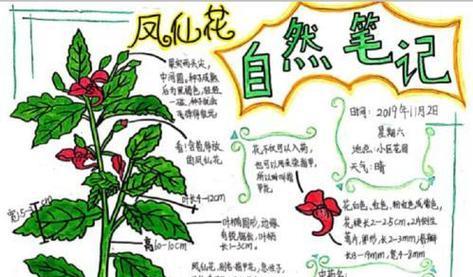 凤仙花
自然笔记
果实两头尖,
中间圆。种子成熟
后为黑褐色,轻轻
一碰,种子就会
看!含苞待放
的凤仙花
叶长4-12cm
宽1.5-3cm
叶椭圆形,边缘
有锯齿,叶柄
长1-3cm
高60-100cm
花不仅可以入药,
也可以用来染指甲,
所以叫指
甲花。
时间:2019年11月2日
星期六
地点:小区花园
天气:晴
花白色、红色、粉红色或紫色,
花梗长2-2.5cm,2片侧生
萼片,卵形,长2-3mm,唇瓣
长8-9mm,宽
凤仙花,别名:指甲花、急性子、